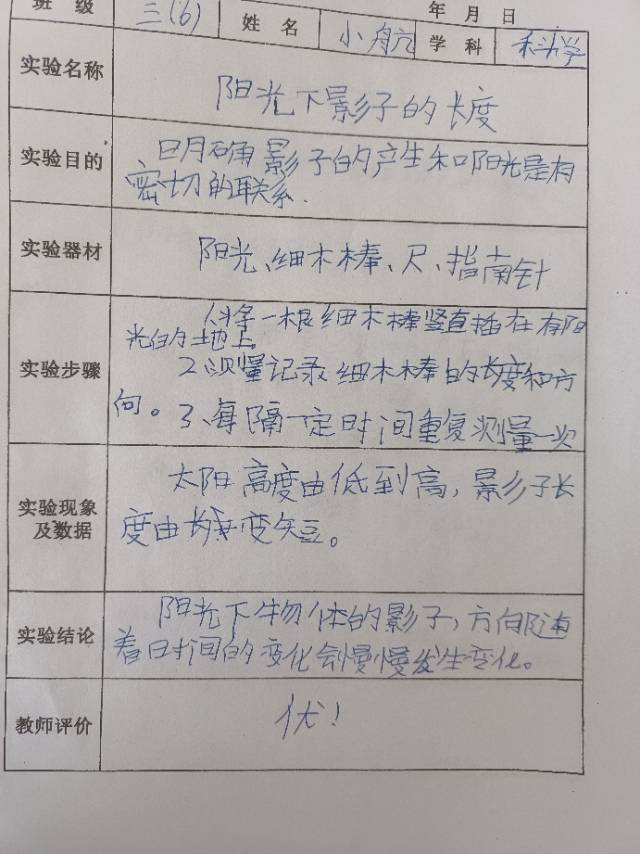 班 级 三(6) 姓 名 小航 学 科 科学
年 月 日
实验名称 阳光下影子的长度
实验目的 明确影子的产生和阳光是有
密切的联系.
实验器材 阳光、细木棒、尺、指南针
实验步骤 1、将一根细木棒竖直插在有阳
光的地上
2、测量记录细木棒的长度和方
向。3、每隔一定时间重复测量一次
实验现象
及数据
太阳高度由低到高，影子长
度由长变短。
实验结论 阳光下物体的影子，方向随
着时间的变化会慢慢发生变化。
教师评价 优！